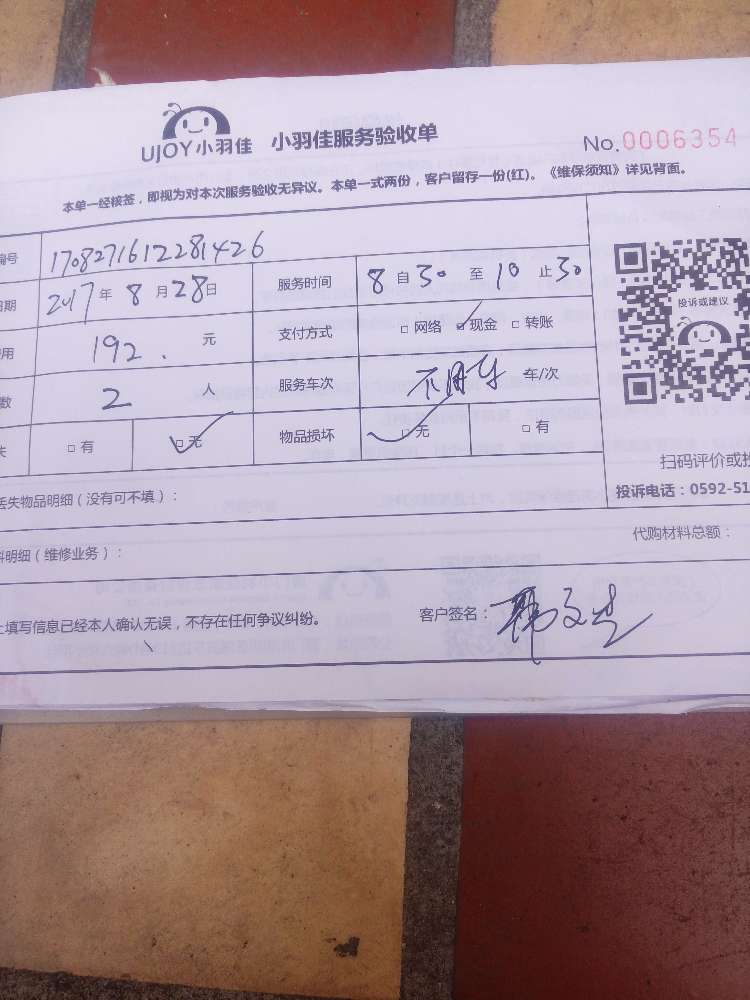 UJOY小羽佳 小羽佳服务验收单
No.0006354
本单一经核签，即视为对本次服务验收无异议。本单一式两份，客户留存一份(红)。《维保须知》详见背面。
编号 1708271612281426
日期 2017年8月28日 服务时间 8自30至10止30
费用 192.元 支付方式 □网络 □现金 □转账
数 2人 服务车次 不用车 车/次
失 □有 □无 物品损坏 □无 □有
投诉或建议
扫码评价或投
投诉电话：0592-51
丢失物品明细（没有可不填）：
代购材料总额：
料明细（维修业务）：
上填写信息已经本人确认无误，不存在任何争议纠纷。 客户签名：